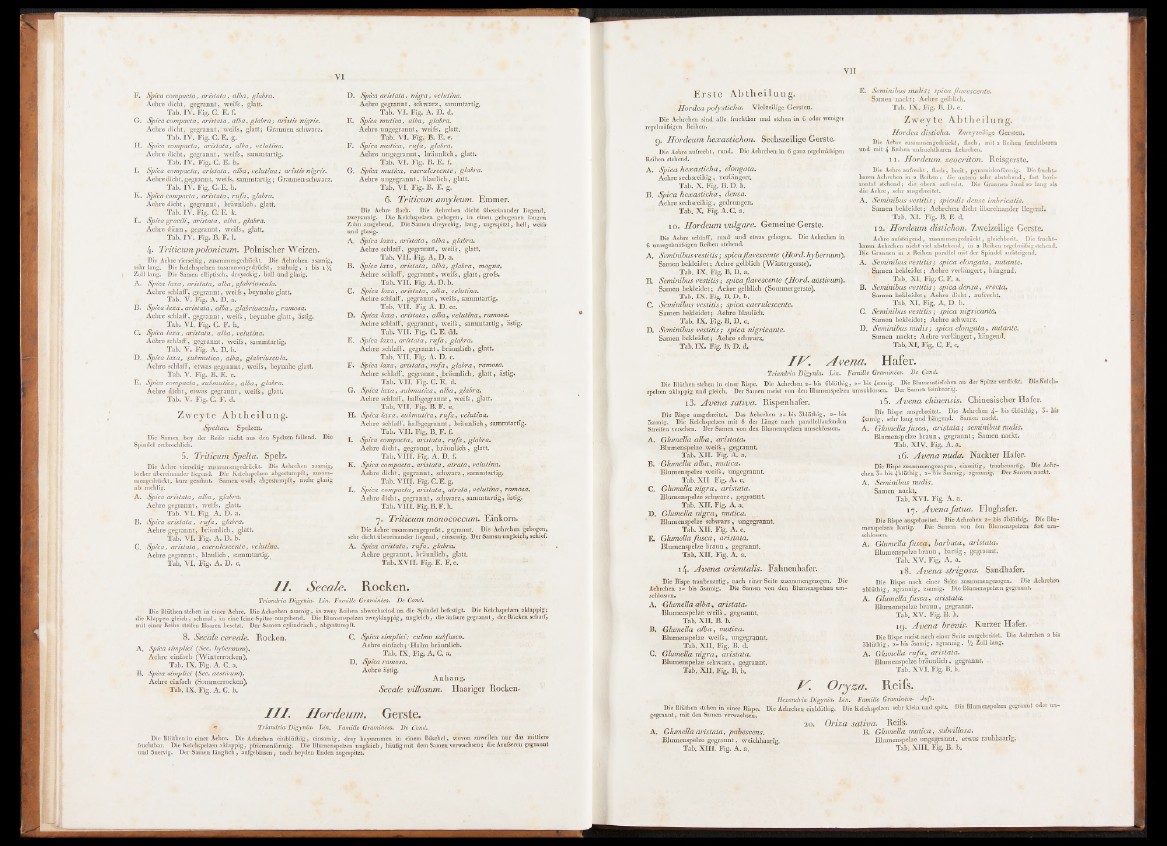 VI
E. Spica compacta, aristata, alba, glabra.
Aehre dicht, gegrannt, weifs, glatt.
Tab. IV. Fig. C. E. f.
G. Spica compacta, aristata, alba, glabra; aristis nigris.
Aehre dicht, gegrannt, weifs, glatt; Grannen schwarz.
Tab. IV. Fig. C. E. g.
H. Spica compacta, aristata, alba, velutina.
Aehre dicht, gegrannt, weifs, sammtartig.
Tab. IV. Fig. C. E. h.
I. Spica compacta, aristata, alba, velutina; aristis nigris.
Aehre dicht, gegrannt, weifs, sammtartig; Grannen schwarz.
Tab. IV. Fig. C. E. h.
K. Spica compacta, aristata, rufa, glabra.
Aehre dicht, gegrannt, bräunlich, glatt.
Tab. IV. Fig. C. E. k.
L. Spica gracili, aristata, alba, glabra.
Aehre dünn, gegrannt, weifs, glatt.
Tab. IV. Fig. B. F. l.
4. Triticum polonicum. Polnischer Weizen.
Die Aehre vierseitig, zusammengedrückt. Die Aehrchen
sehr lang. Die Kelchspelzen zusammengedrückt,
Zoll lang. Die Samen elliptisch, dreyeckig, hell und glasig.
A. Spica laxa, aristata, alba, glabriuscula.
Aehre schlaff, gegrannt, weifs, beynahe glatt.
Tab. V. Fig. A. D. a.
B. Spica laxa, aristata, alba, glabriuscula, ramosa.
Aehre schlaff, gegrannt, weifs, beynahe glatt, ästig.
Tab. VI. Fig. C. F. b.
C. Spica laxa, aristata, alba, velutina.
Aehre schlaff, gegrannt, weifs, sammtartig.
Tab. V. Fig. A. D. b.
D. Spica laxa, submutica, alba, glabriuscula.
Aehre schlaff, etwas gegrannt, weifs, beynahe glatt.
Tab. V. Fig. B. E. c.
E. Spica compacta, submutica, alba, glabra.
Aehre dicht, etwas gegrannt, weifs, glatt.
Tab. V. Fig. C. F. d.
Zweyte Abtheilung.
Speltae. Spelzen.
Die Samen bey der Reife nicht aus den Spelzen fallend. Die
Spindel zerbrechlich.
5. Triticum Spelta. Spelz.
Die Aehre vierseitig zusammengedrückt. Die Aehrchen
locker übereinander liegend. Die Kelchspelzen abgestumpft,
A. Spica aristata, alba, glabra.
Aehre gegrannt, weifs, glatt.
Tab. VI. Fig. A. D. a.
B. Spica aristata, rufa, glabra.
Aehre gegrannt, bräunlich, glatt.
Tab. VI. Fig. A. D. b.
C. Spica, aristata, caerulescente, velutina.
Aehre gegrannt, blaulich, sammtartig.
Tab. VI. Fig. A. D. c.
D. Spica aristata, nigra, velutina.
Aehre gegrannt, schwarz, sammtartig.
Tab. VI. Fig. A. D. d.
E. Spica mutica, alba, glabra.
Aehre ungegrannt, weifs, glatt.
Tab. VI. Fig. B. E. e.
F. Spica mutica, rufa, glabra.
Aehre ungegrannt, bräunlich, glatt.
Tab. VI. Fig. B. E. f.
G. Spica mutica, caerulescente, glabra.
Aehre ungegrannt, blaulich, glatt.
Tab. VI. Fig. B. E. g.
6. Triticum amyleum. Emmer.
Die Aehre flach. Die Aehrchen dicht übereinander liegend,
zweysamig. Die Kelchspelzen gebogen, in einen gebogenen langen
Zahn ausgehend. Die Samen dreyeckig, lang, zugespitzt, hell, weifs
und glasig.
A. Spica laxa, aristata, alba, glabra.
Aehre schlaff, gegrannt, weifs, glatt.
Tab. VII. Fig. A. D. a.
B. Spica laxa, aristata, alba, glabra, magna.
Aehre schlaff, gegrannt, weifs, glatt, grofs.
Tab. VII. Fig. A. D. b.
C. Spica laxa, aristata, alba, velutina.
Aehre schlaff, gegrannt, weifs, sammtartig.
Tab. VII. Fig. A. D. cc.
D. Spica laxa, aristata, alba, velutina, ramosa.
Aehre schlaff, gegrannt, weifs, sammtartig, ästig.
Tab. VII. Fig. C. E. dd.
E. Spica laxa, aristata, rufa, glabra.
Aehre schlaff, gegrannt, bräunlich, glatt.
Tab. VII. Fig. A. D. c.
F. Spica laxa, aristata, rufa, glabra, ramosa.
Aehre schlaff, gegrannt, bräunlich, glatt, ästig.
Tab. VII. Fig. C. E. d.
G. Spica laxa, submutica, alba, glabra.
Aehre schlaff, halbgegrannt, weifs, glatt.
Tab. VII. Fig. B. F. e.
H. Spica laxa, submutica, rufa, velutina.
Aehre schlaff, halbgegrannt, bräunlich, sammtartig.
Tab. VII. Fig. B. F. f.
I. Spica compacta, aristata, rufa, glabra.
Aehre dicht, gegrannt, bräunlich, glatt.
Tab. VIII. Fig. A. D. f.
K. Spica compacta, aristata, atrata, velutina.
Aehre dicht, gegrannt, schwarz, sammtartig.
Tab. VIII. Fig. C. E. g.
L. Spica compacta, aristata, atrata, velutina, ramosa.
Aehre dicht, gegrannt, schwarz, sammtartig, ästig.
Tab. VIII. Fig. B. F. h.
7. Triticum monococcum. Einkorn.
Die Aehre zusammengeprefst, gegrannt. Die Aehrchen gebogen,
sehr dicht übereinander liegend, einsamig. Der Samen ungleich, schief.
A. Spica aristata, rufa, glabra.
Aehre gegrannt, bräunlich, glatt.
Tab. XVII. Fig. E. F. c.
II. Secale. Rocken.
Triandria Digynia. Lin. Famille Graminées. De Cand.
Die Blüthen stehen in einer Aehre. Die Aehrchen zsamig, in zwey Reihen abwechselnd an die Spindel befestigt. Die Kelchspelzen zklappig;
die Klappen gleich, schmal, in eine feine Spitze ausgehend. Die Blumenspelzen zweyklappig, ungleich, die äufsere gegrannt, der Rücken scharf,
mit einer Reihe steifer Haaren besetzt. Der Samen cylindrisch, abgestumpft.
8. Secale cereale. Rocken.
A. Spica simplici (Sec. hybernum).
Aehre einfach (Winterrocken).
Tab. IX. Fig. A. C. a.
B. Spica simplici (Sec. aestivum).
Aehre einfach (Sommerrocken).
Tab. IX. Fig. A. C. b.
C. Spica simplici; culmo subfusco.
Aehre einfach; Halm bräunlich.
Tab. IX. Fig. A. C. a.
D. Spica ramosa.
Aehre ästig.
Anhang.
Secale villosum. Haariger Rocken.
III. Hordeum. Gerste.
Triandria Digynia. Lin. Famille Graminées. De Cand.
Die Blüthen in einer Aehre. Die Aehrchen einblüthig, einsamig, drey beysammen in einem Büschel, wovon zuweilen nur das mittlere
fruchtbar. Die Kelchspelzen zklappig, pfriemenförmig. Die Blumenspelzen ungleich, häufig mit dem Samen verwachsen; die Aeufseren gegrannt
und 5nervig. Der Samen länglich, aufgeblasen, nach beyden Enden zugespitzt.
VII
Erste Abtheilung.
Hordea polysticha. Vielzeilige Gersten.
Die Aehrchen sind alle fruchtbar und stehen in 6 oder weniger
regelmäfsigen Reihen.
9. Hordeum hexastichon. Sechszeilige Gerste.
Die Aehre aufrecht, rund. Die Aehrchen in 6 ganz regelmäfsigen
Reihen stehend.
A. Spica hexasticha, elongata.
Aehre sechszeilig, verlängert.
Tab. X. Fig. B. D. b.
B. Spica hexasticha, densa.
Aehre sechszeilig, gedrungen.
Tab. X. Fig. A. C. a.
10. Hordeum vulgare. Gemeine Gerste.
Die Aehre schlaff, rund und etwas gebogen. Die Aehrchen in
6 unregelmäfsigen Reihen stehend.
A. Seminibus vestitis; spica flavescente (Hord. hybernum).
Samen bekleidet; Aehre gelblich (Wintergerste).
Tab. IX. Fig. B. D. a.
B. Seminibus vestitis; spica flavescente (Hord. aestivum).
Samen bekleidet; Aehre gelblich (Sommergerste).
Tab. IX. Fig. B. D. b.
C. Seminibus vestitis; spica caerulescente.
Samen bekleidet; Aehre blaulich.
Tab. IX. Fig. B. D. c.
D. Seminibus vestitis; spica nigricante.
Samen bekleidet; Aehre schwarz.
Tab. IX. Fig. B. D. d.
E. Seminibus nudis; spica flavescente.
Samen nackt; Aehre gelblich.
Tab. IX. Fig. B. D. e.
Zweyte Abtheilung.
Hordea disticha. Zweyzeilige Gersten.
Die Aehre zusammengedrückt, flach, mit 2 Reihen fruchtbaren
und mit 4 Reihen unfruchtbaren Aehrchen.
11. Hordeum zeocriton. Reisgerste.
Die Aehre aufrecht, flach, breit, pyramidenförmig. Die frucht-
baren Aehrchen in 2 Reihen; die untern sehr abstehend, fast hori-
zontal stehend; die obern aufrecht. Die Grannen 2mal so lang als
die Aehre, sehr ausgebreitet.
A. Seminibus vestitis; spiculis dense imbricatis.
Samen bekleidet; Aehrchen dicht übereinander liegend.
Tab. XI. Fig. B. E. d.
12. Hordeum distichon. Zweizeilige Gerste.
Aehre aufsteigend, zusammengedrückt, gleichbreit. Die frucht-
baren Aehrchen nicht viel abstehend, in 2 Reihen regelmäfsig stehend.
Die Grannen in 2 Reihen parallel mit der Spindel aufsteigend.
A. Seminibus vestitis; spica elongata, nutante.
Samen bekleidet; Aehre verlängert, hängend.
Tab. XI. Fig. C. F. a.
B. Seminibus vestitis; spica densa, erecta.
Samen bekleidet; Aehre dicht, aufrecht.
Tab. XI. Fig. A. D. b.
C. Seminibus vestitis; spica nigricante.
Samen bekleidet; Aehre schwarz.
D. Seminibus nudis; spica elongata, nutante.
Samen nackt; Aehre verlängert, hängend.
Tab. XI. Fig. C. F. c.
IV. Avena. Hafer.
Triandria Digynia. Lin. Famille Graminées. De Cand.
Die Blüthen stehen in einer Rispe. Die Aehrchen 2- bis 6blüthig, 2- bis 5samig. Die Blumenstielchen an der Spitze verdickt. Die Kelch-
spelzen zklappig und gleich. Der Samen nackt von den Blumenspelzen umschlossen. Der Samen borstenartig.
13. Avena sativa. Rispenhafer.
Die Rispe ausgebreitet. Das Aehrchen 2- bis 3blüthig, 2- bis
3samig. Die Kelchspelzen mit 8 der Länge nach parallellaufenden
Streifen versehen. Der Samen von den Blumenspelzen umschlossen.
A. Glumella alba, aristata.
Blumenspelze weifs, gegrannt.
Tab. XII. Fig. A. a.
B. Glumella alba, mutica.
Blumenspelze weifs, ungegrannt.
Tab. XII. Fig. A. c.
C. Glumella nigra, aristata.
Blumenspelze schwarz, gegrannt.
Tab. XII. Fig. A. a.
D. Glumella nigra, mutica.
Blumenspelze schwarz, ungegrannt.
Tab. XII. Fig. A. c.
E. Glumella fusca, aristata.
Blumenspelze braun, gegrannt.
Tab. XII. Fig. A. a.
14. Avena orientalis. Fahnenhafer.
Die Rispe traubenartig, nach einer Seite zusammengezogen. Die
Aehrchen 2- bis 3samig. Die Samen von den Blumenspelzen um-
schlossen.
A. Glumella alba, aristata.
Blumenspelze weifs, gegrannt.
Tab. XII. B. b.
B. Glumella alba, mutica.
Blumenspelze weifs, ungegrannt.
Tab. XII. Fig. B. d.
C. Glumella nigra, aristata.
Blumenspelze schwarz, gegrannt.
Tab. XII. Fig. B. b.
15. Avena chinensis. Chinesischer Hafer.
Die Rispe ausgebreitet. Die Aehrchen 4- bis 6blüthig, 3- bis
5samig, sehr lang und hängend. Samen nackt.
A. Glumella fusca, aristata; seminibus nudis.
Blumenspelze braun, gegrannt; Samen nackt.
16. Avena nuda. Nackter Hafer.
Die Rispe zusammengezogen, einseitig, traubenartig. Die Aehr-
A. Seminibus nudis.
Samen nackt.
Tab. XVI. Fig. A. a.
17. Avena fatua. Flughafer.
Die Rispe ausgebreitet. Die Aehrchen 2- bis 3blüthig. Die Blu-
menspelzen haarig. Die Samen von den Blumenspelzen fest um-
schlossen.
A. Glumella fusca, barbata, aristata.
Blumenspelze braun, bartig, gegrannt.
Tab. XV. Fig. A. a.
18. Avena strigosa. Sandhafer.
Die Rispe nach einer Seite zusammengezogen. Die Aehrchen
2blüthig, 2grannig, 2samig. Die Blumenspelzen gegrannt.
A. Glumella fusca, aristata.
Blumenspelze braun, gegrannt.
Tab. XV. Fig. B. b.
19. Avena brevis. Kurzer Hafer.
Die Rispe meist nach einer Seite ausgebreitet. Die Aehrchen 2 bis
3blüthig, 2- bis 3samig, 2grannig, ½ Zoll lang.
A. Glumella rufa, aristata.
Blumenspelze bräunlich, gegrannt.
Tab. XVI. Fig. B. b.
V. Oryza. Reifs.
Hexandria Digynia. Lin. Famille Graminées. Juss.
Die Blüthen stehen in einer Rispe. Die Aehrchen einblüthig. Die Kelchspelzen sehr klein und spitz. Die Blumenspelzen gegrannt oder un-
gegrannt, mit den Samen verwachsen.
20. Oriza sativa. Reifs.
A. Glumella aristata, pubescens.
Blumenspelze gegrannt, weichhaarig.
Tab. XIII. Fig. A. a.
B. Glumella mutica, subvillosa.
Blumenspelze ungegrannt, etwas rauhhaarig.
Tab. XIII. Fig. B. b.